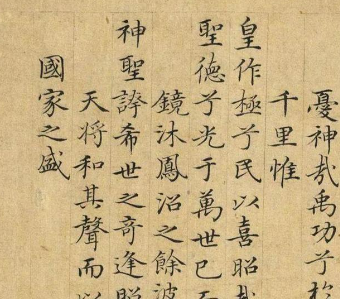 憂神哉禹功兮於
千里惟
皇作極兮民以喜昭哉
聖德兮光于萬世已
鏡沐鳳沼之餘波
神聖誶希世之奇逢
天将和其聲而以
國家之盛